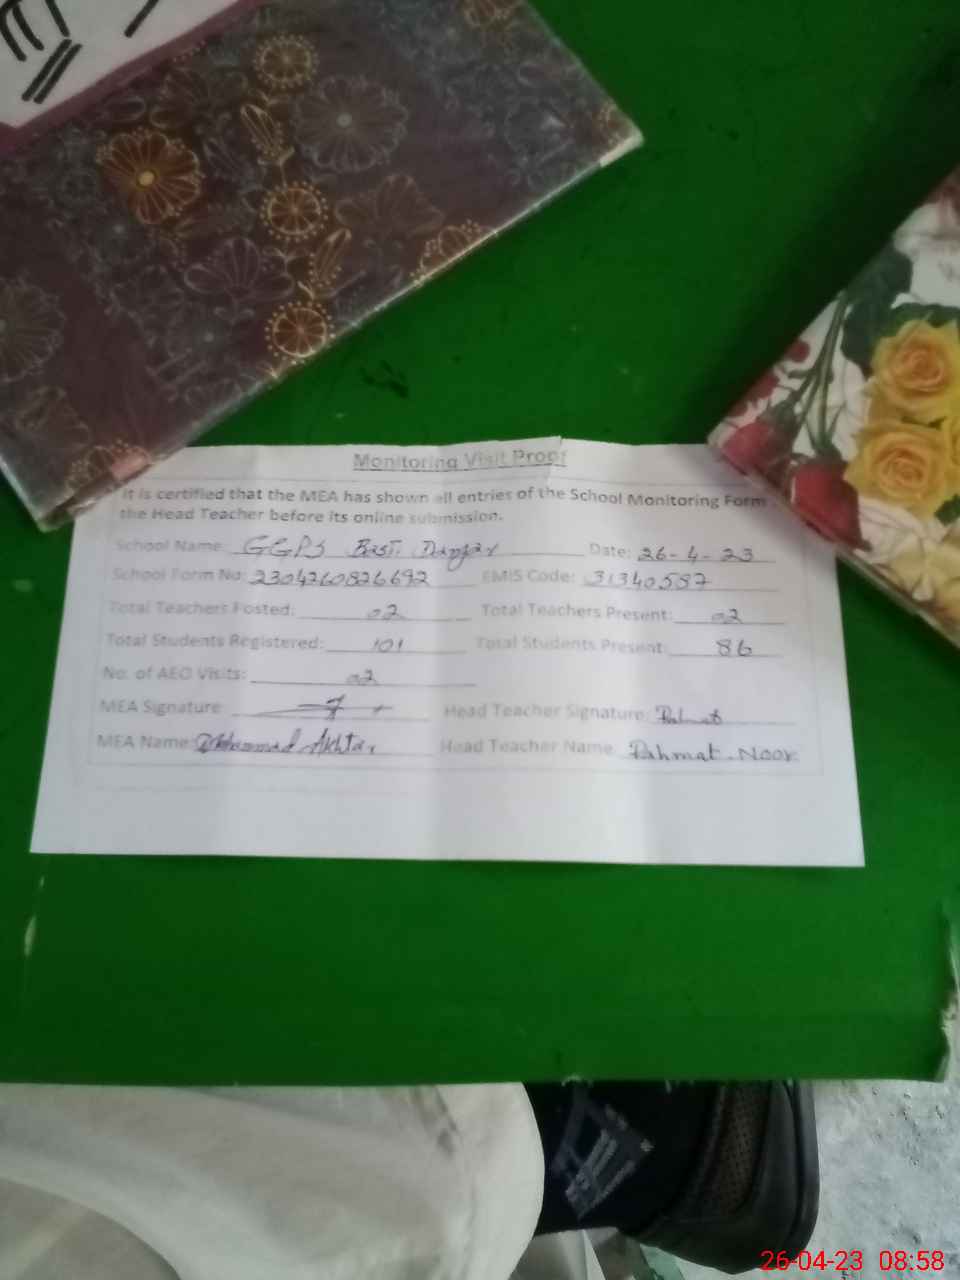 Monitoring Visit Proof
It is certified that the MEA has shown all entries of the School Monitoring Form
the Head Teacher before its online submission.
School Name: GGPS Basti Date: 26-4-23
School Form No: 2304260826692 EMIS Code: 31340587
Total Teachers Posted: 02 Total Teachers Present: 02
Total Students Registered: 101 Total Students Present: 86
No. of AEO Visits: 02
MEA Signature: Head Teacher Signature: Rahmat
MEA Name: Mohammad Akhtar Head Teacher Name: Rahmat Noor
26-04-23 08:58